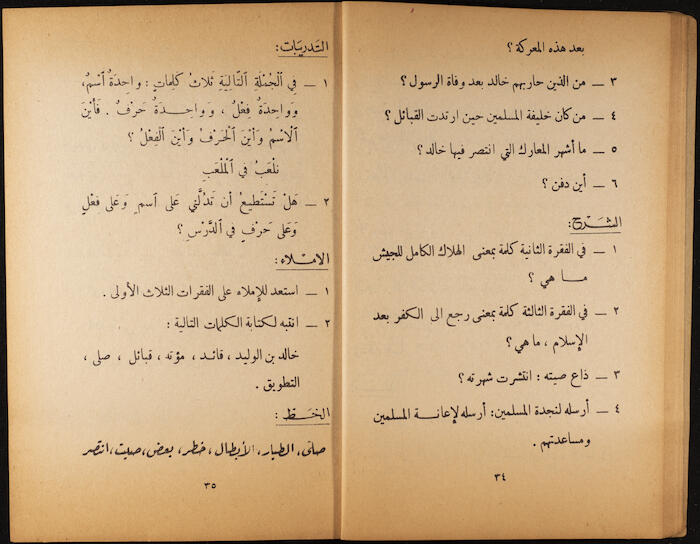 بعد هذه المعركة ؟
٣ — من الذين حاربهم خالد بعد وفاة الرسول ؟
٤ — من كان خليفة المسلمين حين ارتدت القبائل ؟
٥ — ما أشهر المعارك التي انتصر فيها خالد ؟
٦ — أين دفن ؟
الشرح :
١ — في الفقرة الثانية كلمة بمعنى الهلاك الكامل للجيش
ما هي ؟
٢ — في الفقرة الثالثة كلمة بمعنى رجع الى الكفر بعد
الإسلام ، ما هي ؟
٣ — ذاع صيته : انتشرت شهرته ؟
٤ — أرسله لنجدة المسلمين : أرسله لإعانة المسلمين
ومساعدتهم .
٣٤
التدريبات :
١ — في الْجُمْلَةِ التَّالِيَةِ ثَلاثُ كَلِماتٍ : واحِدَةٌ اْسْمٌ،
وَواحِدَةٌ فِعْلٌ ، وَواحِدَةٌ حَرْفٌ . فَأَيْنَ
الْاسْمُ وَأَيْنَ الْحَرْفُ وَأَيْنَ الْفِعْلُ ؟
نَلْعَبُ فِي الْمَلْعَبِ
٢ — هَلْ تَسْتَطيعُ أَن تَدُلَّني عَلى اسمٍ وَعَلى فِعْلٍ
وَعَلى حَرْفٍ في الدَّرْسِ ؟
الاملاء :
١ — استعد للإملاء على الفقرات الثلاث الأولى .
٢ — انتبه لكتابة الكلمات التالية :
خالد بن الوليد ، قائد ، مؤته ، قبائل ، صلى ،
التطويق .
الخط :
صلى، الطيار، الأبطال، خطر، بعض، صيت، انتصر
٣٥